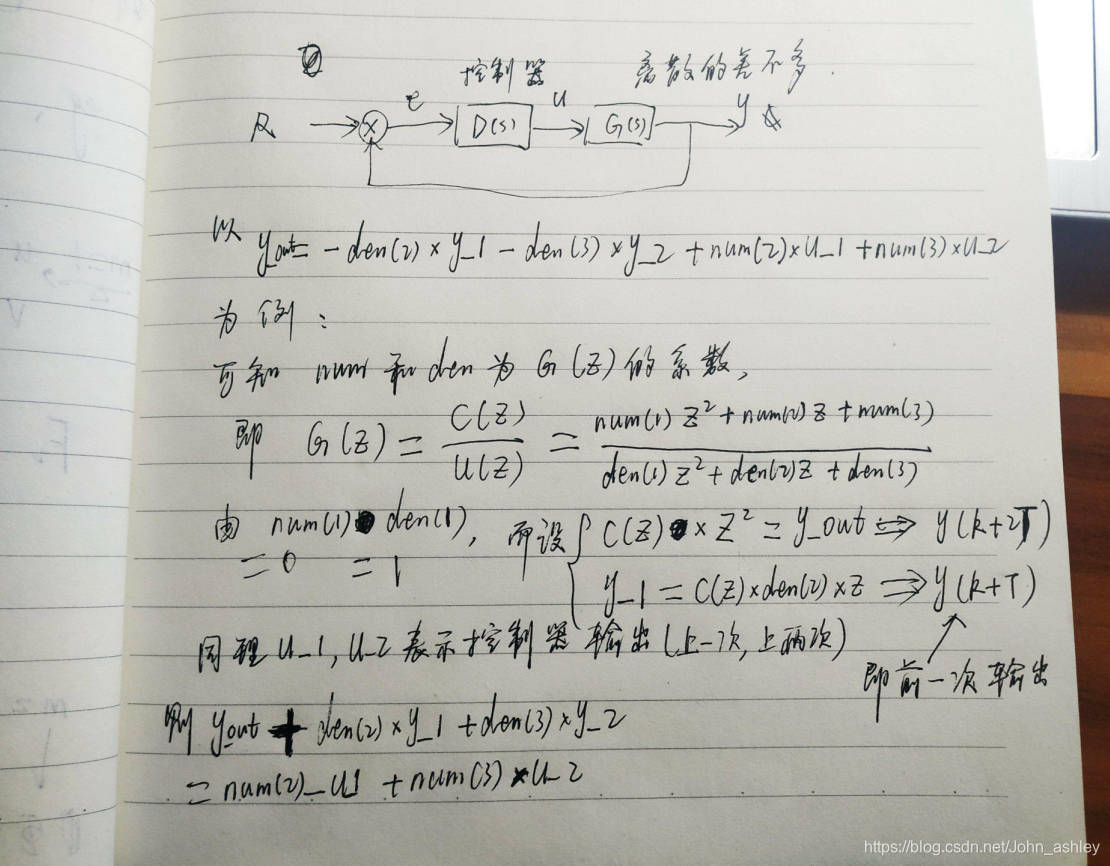 控制器 离散的差不多.
R e D(s) u G(s) y
以 y_out = -den(2)×y_1 - den(3)×y_2 + num(2)×u_1 + num(3)×u_2
为例:
可知 num 和 den 为 G(Z) 的系数,
即 G(Z) = C(Z)/U(Z) = (num(1)Z²+num(2)Z+num(3))/(den(1)Z²+den(2)Z+den(3))
由 num(1) den(1), 而设 { C(Z) × Z² = y_out ⇒ y(k+2T)
=0 =1 y_1 = C(Z)×den(2)×Z ⇒ y(k+T)
同理 u_1, u_2 表示控制器输出(上一次,上两次)
即前一次输出
则 y_out + den(2)×y_1 + den(3)×y_2
= num(2)_u1 + num(3)×u_2
https://blog.csdn.net/John_ashley